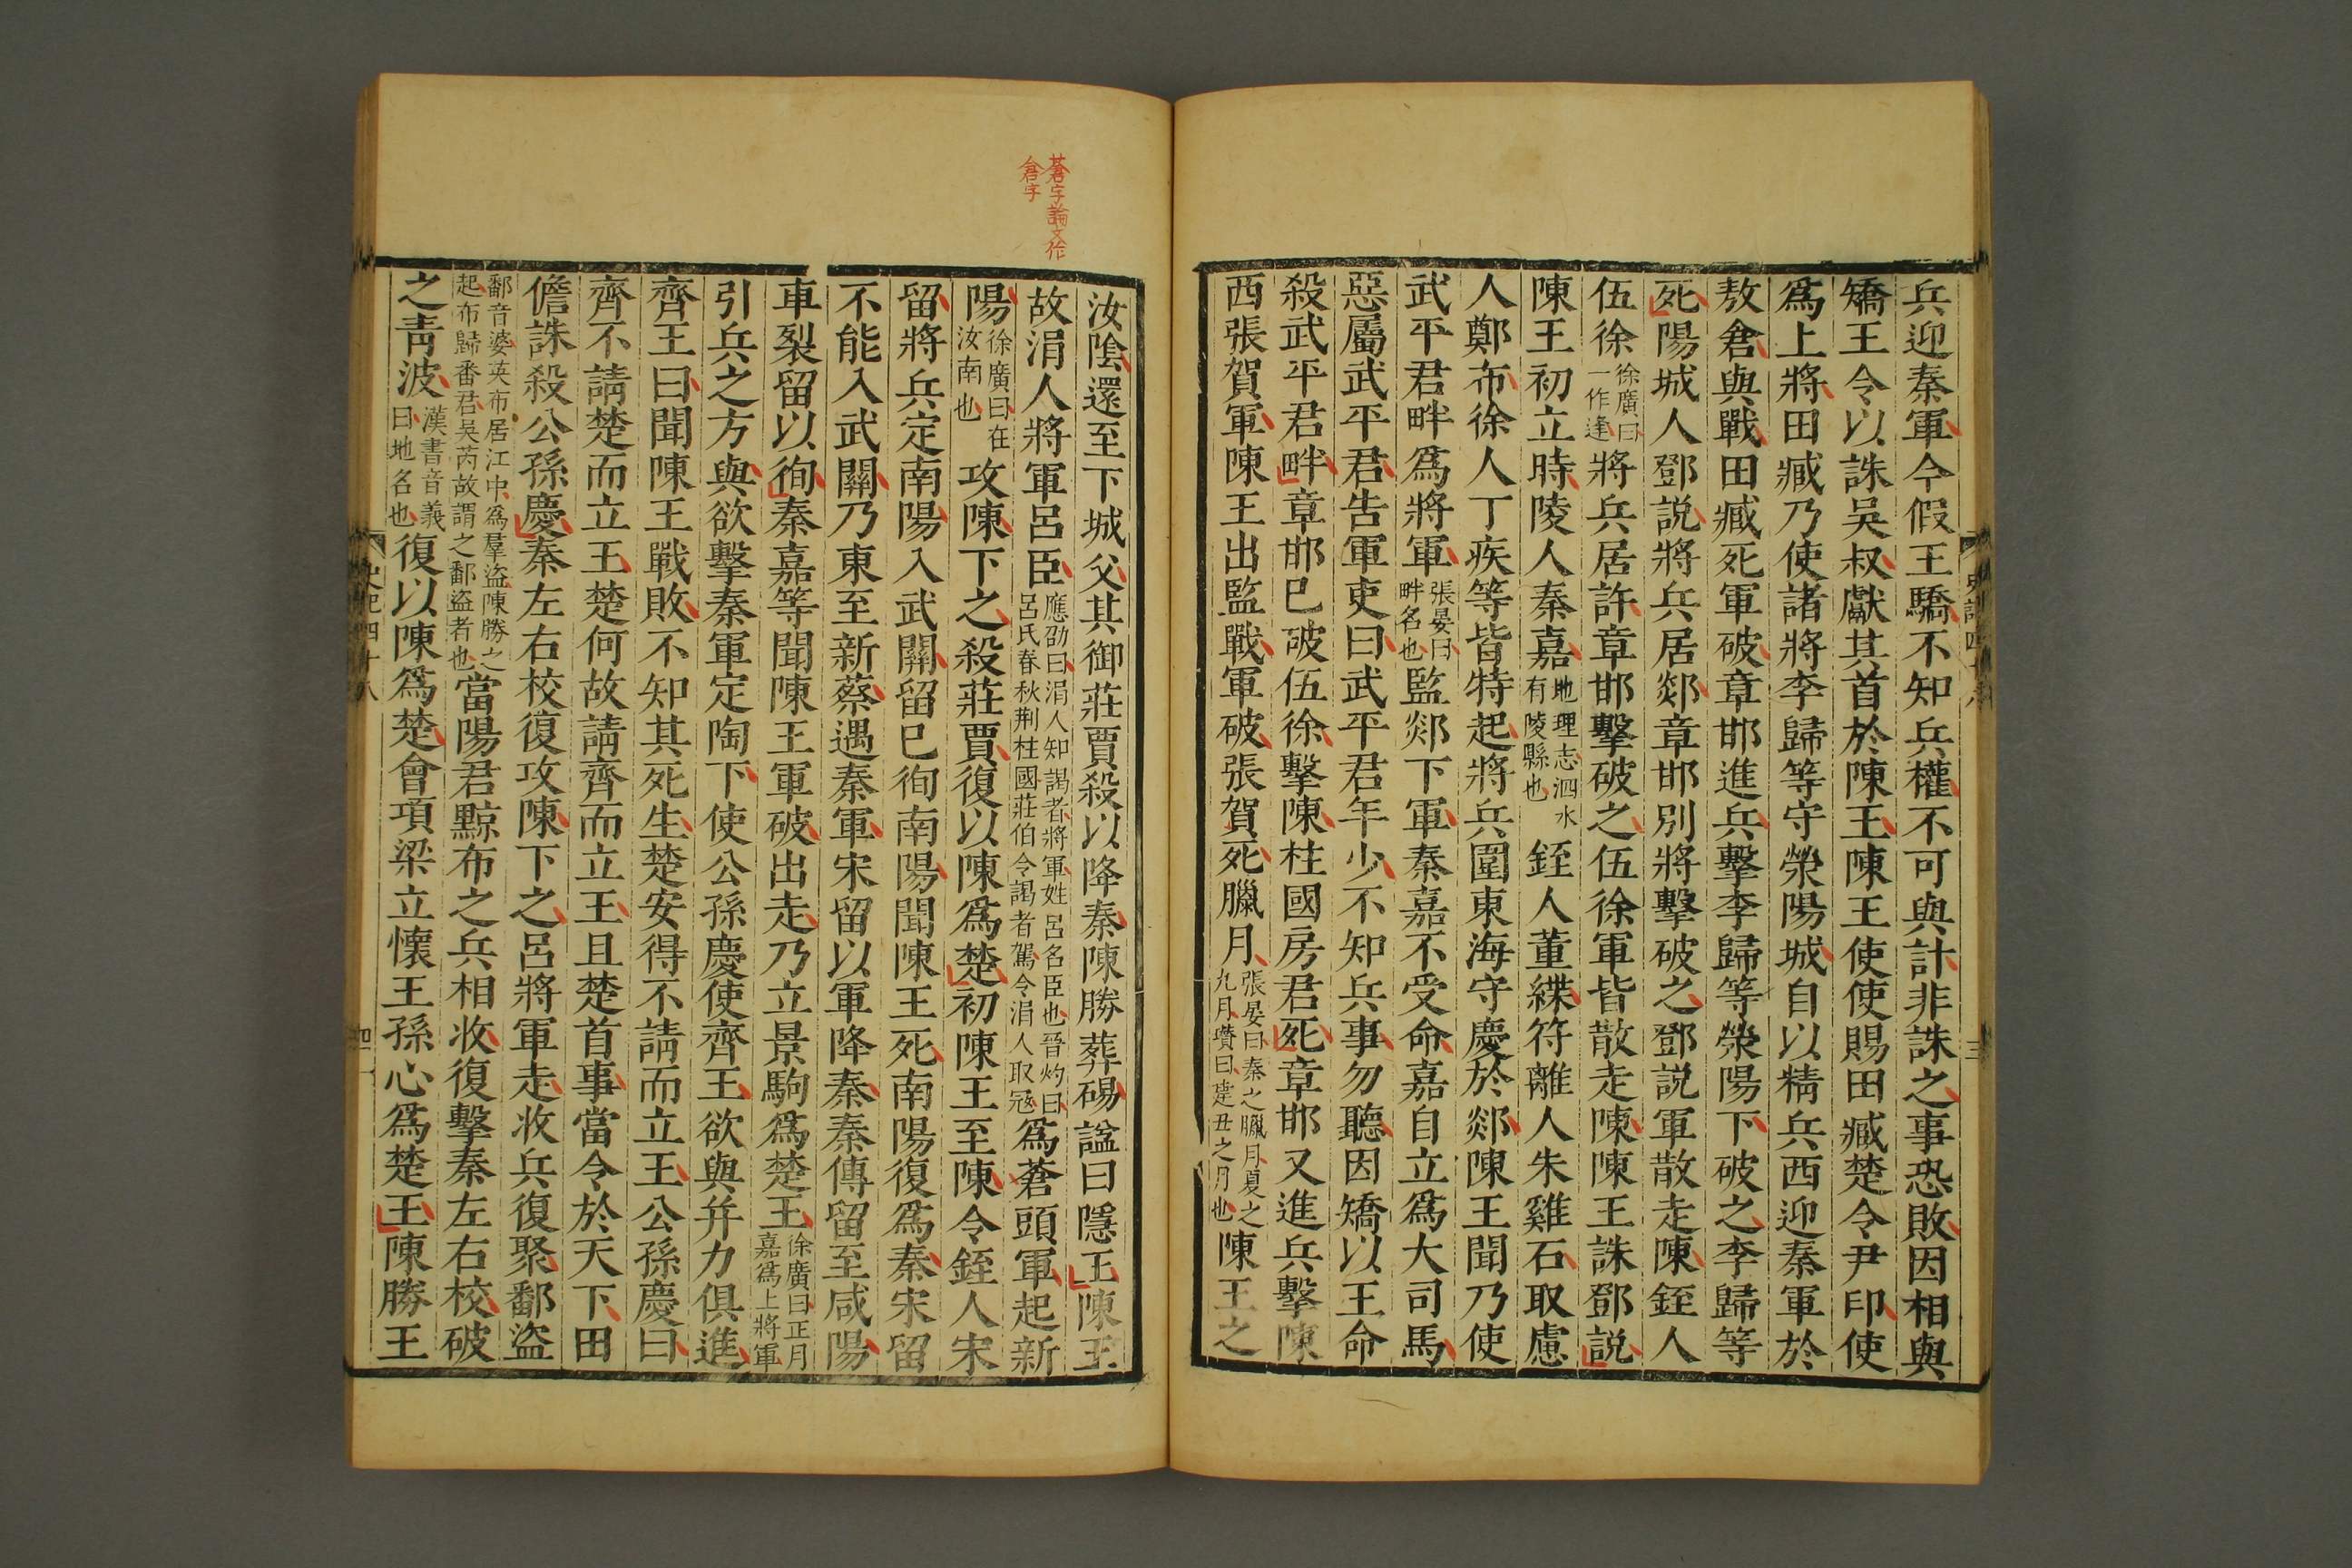 兵迎秦軍今假王驕不知兵權不可與計非誅之事恐敗因相與
矯王令以誅吳叔獻其首於陳王陳王使使賜田臧楚令尹印使
爲上將田臧乃使諸將李歸等守滎陽城自以精兵西迎秦軍於
敖倉與戰田臧死軍破章邯進兵擊李歸等滎陽下破之李歸等
死陽城人鄧說將兵居郯章邯別將擊破之鄧說軍散走陳銍人
伍徐徐廣曰一作逢將兵居許章邯擊破之伍徐軍皆散走陳陳王誅鄧說
陳王初立時陵人秦嘉地理志泗水有陵縣也銍人董緤符離人朱雞石取慮
人鄭布徐人丁疾等皆特起將兵圍東海守慶於郯陳王聞乃使
武平君畔爲將軍張晏曰畔名也監郯下軍秦嘉不受命嘉自立爲大司馬
惡屬武平君告軍吏曰武平君年少不知兵事勿聽因矯以王命
殺武平君畔章邯已破伍徐擊陳柱國房君死章邯又進兵擊陳
西張賀軍陳王出監戰軍破張賀死臘月張晏曰秦之臘月夏之九月瓚曰建丑之月也陳王之
史記四十八
三
蒼字論文作
倉字
汝陰還至下城父其御莊賈殺以降秦陳勝葬碭諡曰隱王陳王
故涓人將軍呂臣應劭曰涓人知謁者將軍姓呂名臣也晉灼曰呂氏春秋荆柱國莊伯令謁者駕令涓人取冠爲蒼頭軍起新
陽徐廣曰在汝南也攻陳下之殺莊賈復以陳爲楚初陳王至陳令銍人宋
留將兵定南陽入武關留已徇南陽聞陳王死南陽復爲秦宋留
不能入武關乃東至新蔡遇秦軍宋留以軍降秦秦傳留至咸陽
車裂留以徇秦嘉等聞陳王軍破出走乃立景駒爲楚王徐廣曰正月嘉爲上將軍
引兵之方與欲擊秦軍定陶下使公孫慶使齊王欲與并力俱進
齊王曰聞陳王戰敗不知其死生楚安得不請而立王公孫慶曰
齊不請楚而立王楚何故請齊而立王且楚首事當令於天下田
儋誅殺公孫慶秦左右校復攻陳下之呂將軍走收兵復聚鄱盜
鄱音婆英布居江中爲羣盜陳勝之起布歸番君吳芮故謂之鄱盜者也當陽君黥布之兵相收復擊秦左右校破
之青波漢書音義曰地名也復以陳爲楚會項梁立懷王孫心爲楚王陳勝王
史記四十八
四